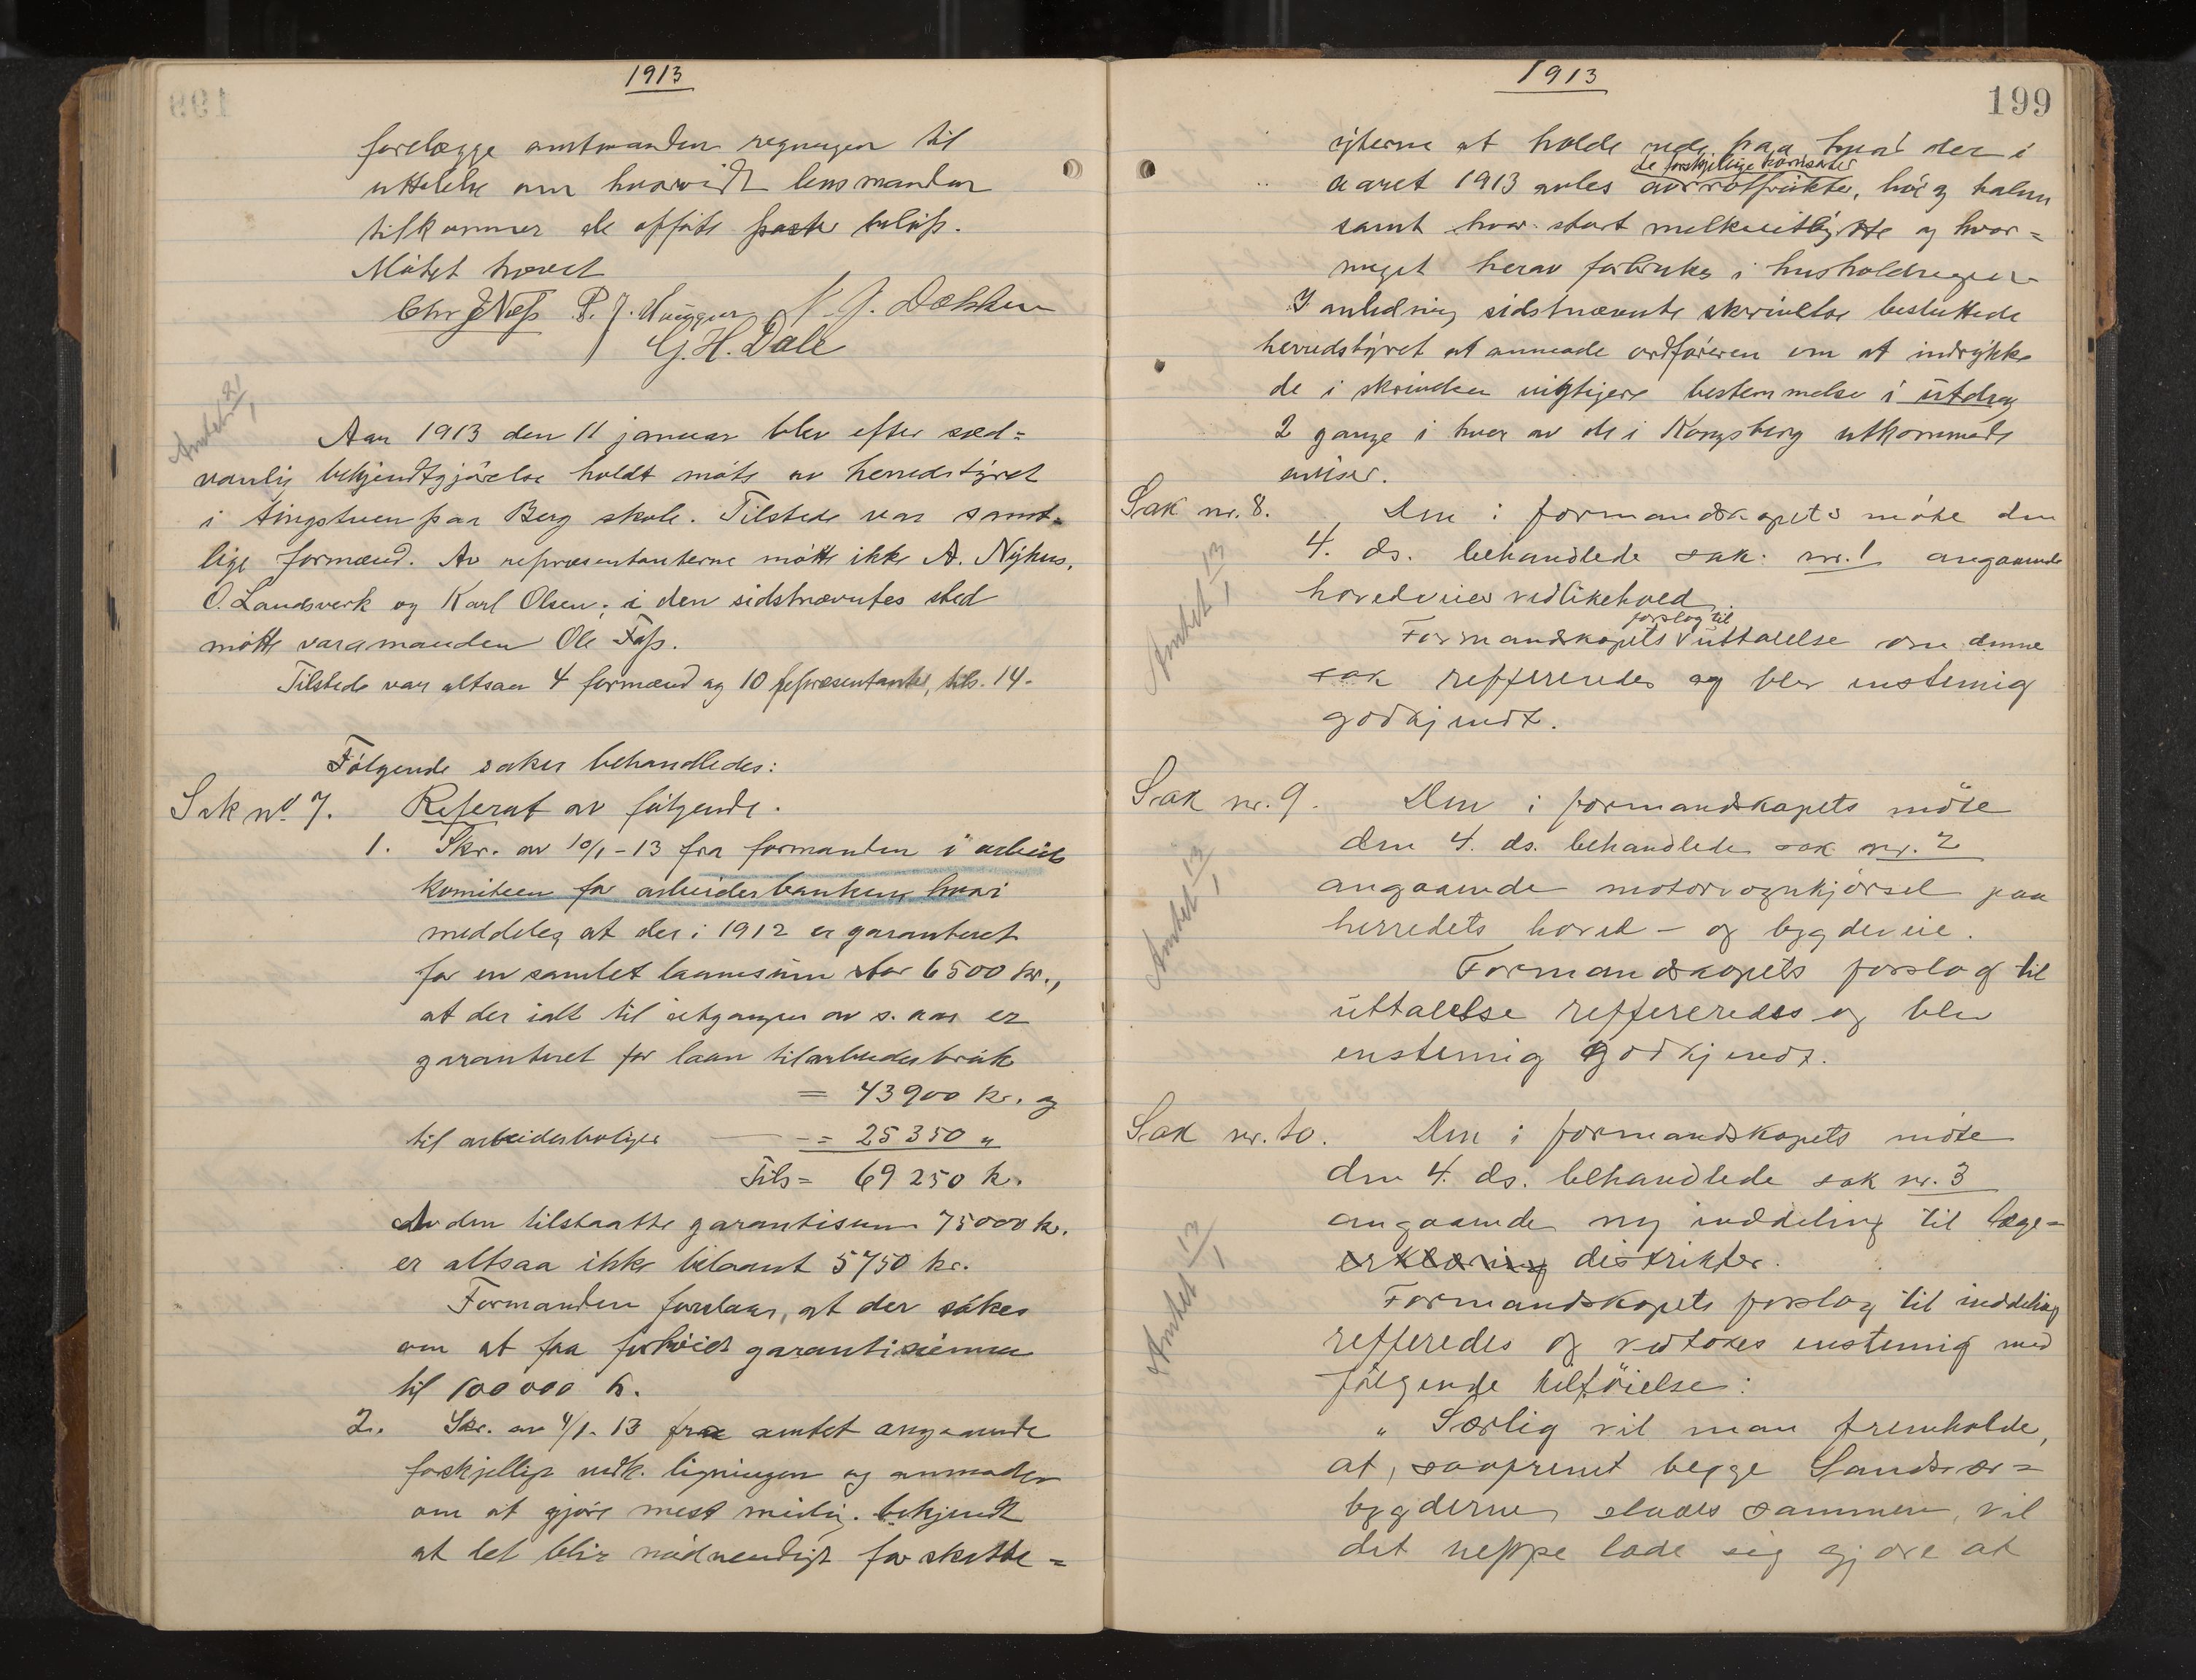 1913
forelægge amtmanden regningen til
uttalelse om hvorvidt lensmanden
tilkommer de opførte beløp.
Møtet hævet
Chr J Næss P. J. N. J. Dokken
G. H. Dale
Amtet 21/1
Aar 1913 den 11 januar blev efter sæd=
vanlig bekjendtgjørelse holdt møte av herredstyret
i tingstuen paa Berg skole. Tilstede var samt=
lige formænd. Av repræsentanterne møtte ikke A. Nyhus,
O. Landsverk og Karl Olsen; i den sidstnævntes sted
møtte varamanden Ole Foss.
Tilstede var altsaa 4 formænd og 10 repræsentanter, tils. 14.
Følgende saker behandledes:
Sak no. 7. Referat av følgende.
1. Skr. av 10/1-13 fra formanden i arbeids
komiteen for arbeiderbanken, hvori
meddeles at der i 1912 er garanteret
for en samlet laanesum stor 6500 kr.,
at der ialt til utgangen av s. aar er
garanteret for laan til arbeiderbruk
= 43900 kr. og
til arbeiderboliger = 25350 "
Tils = 69250 kr.
Av den tilstaatte garantisum 75000 kr.
er altsaa ikke belaant 5750 kr.
Formanden foreslaar, at der søkes
om at faa forhøiet garantisummen
til 100000 kr.
2. Skr. av 4/1-13 fra amtet angaaende
forskjellige vedk. ligningen og anmoder
om at gjøre mest mulig bekjendt
at det blir nødvendigt for skatte=
1913
199
yterne at holde rede paa hvad der i
de forskjellige kornsorter
aaret 1913 avles av rotfrukter, høi og halm
samt hvor stort melkeutbytte og hvor=
meget herav forbrukes i husholdningen
I anledning sidstnævnte skrivelse besluttede
herredstyret at anmode ordføreren om at indrykke
de i skrivelsen vigtigere bestemmelse i utdrag
2 gange i hver av de i Kongsberg utkommende
aviser.
Sak nr. 8. Den i formandskapets møte den
4. ds. behandlede sak nr. 1 angaaende
Amtet 13/1
hovedveies vedlikehold.
forslag til
Formandskapets uttalelse om denne
sak reffereredes og blev enstemig
godkjendt.
Sak nr. 9. Den i formandskapets møte
den 4. ds. behandlede sak nr. 2
Amtet 13/1
angaaende motorvognkjørsel paa
herredets hoved- og bygdeveie.
Formandskapets forslag til
uttalelse reffereredes og blev
enstemig godkjendt.
Sak nr. 10. Den i formandskapets møte
den 4. ds. behandlede sak nr. 3
Amtet 13/1
angaaende ny inddeling til læge=
erklæring distrikter.
Formandskapets forslag til inddeling
refferedes og vedtokes enstemig med
følgende tilføielse:
" Særlig vil man fremholde,
at, saafremt begge Sandsvær=
bygderne slaaes sammen, vil
det neppe lade sig gjøre at